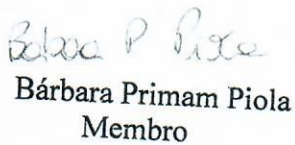 Bárbara P Piola
Bárbara Primam Piola
Membro